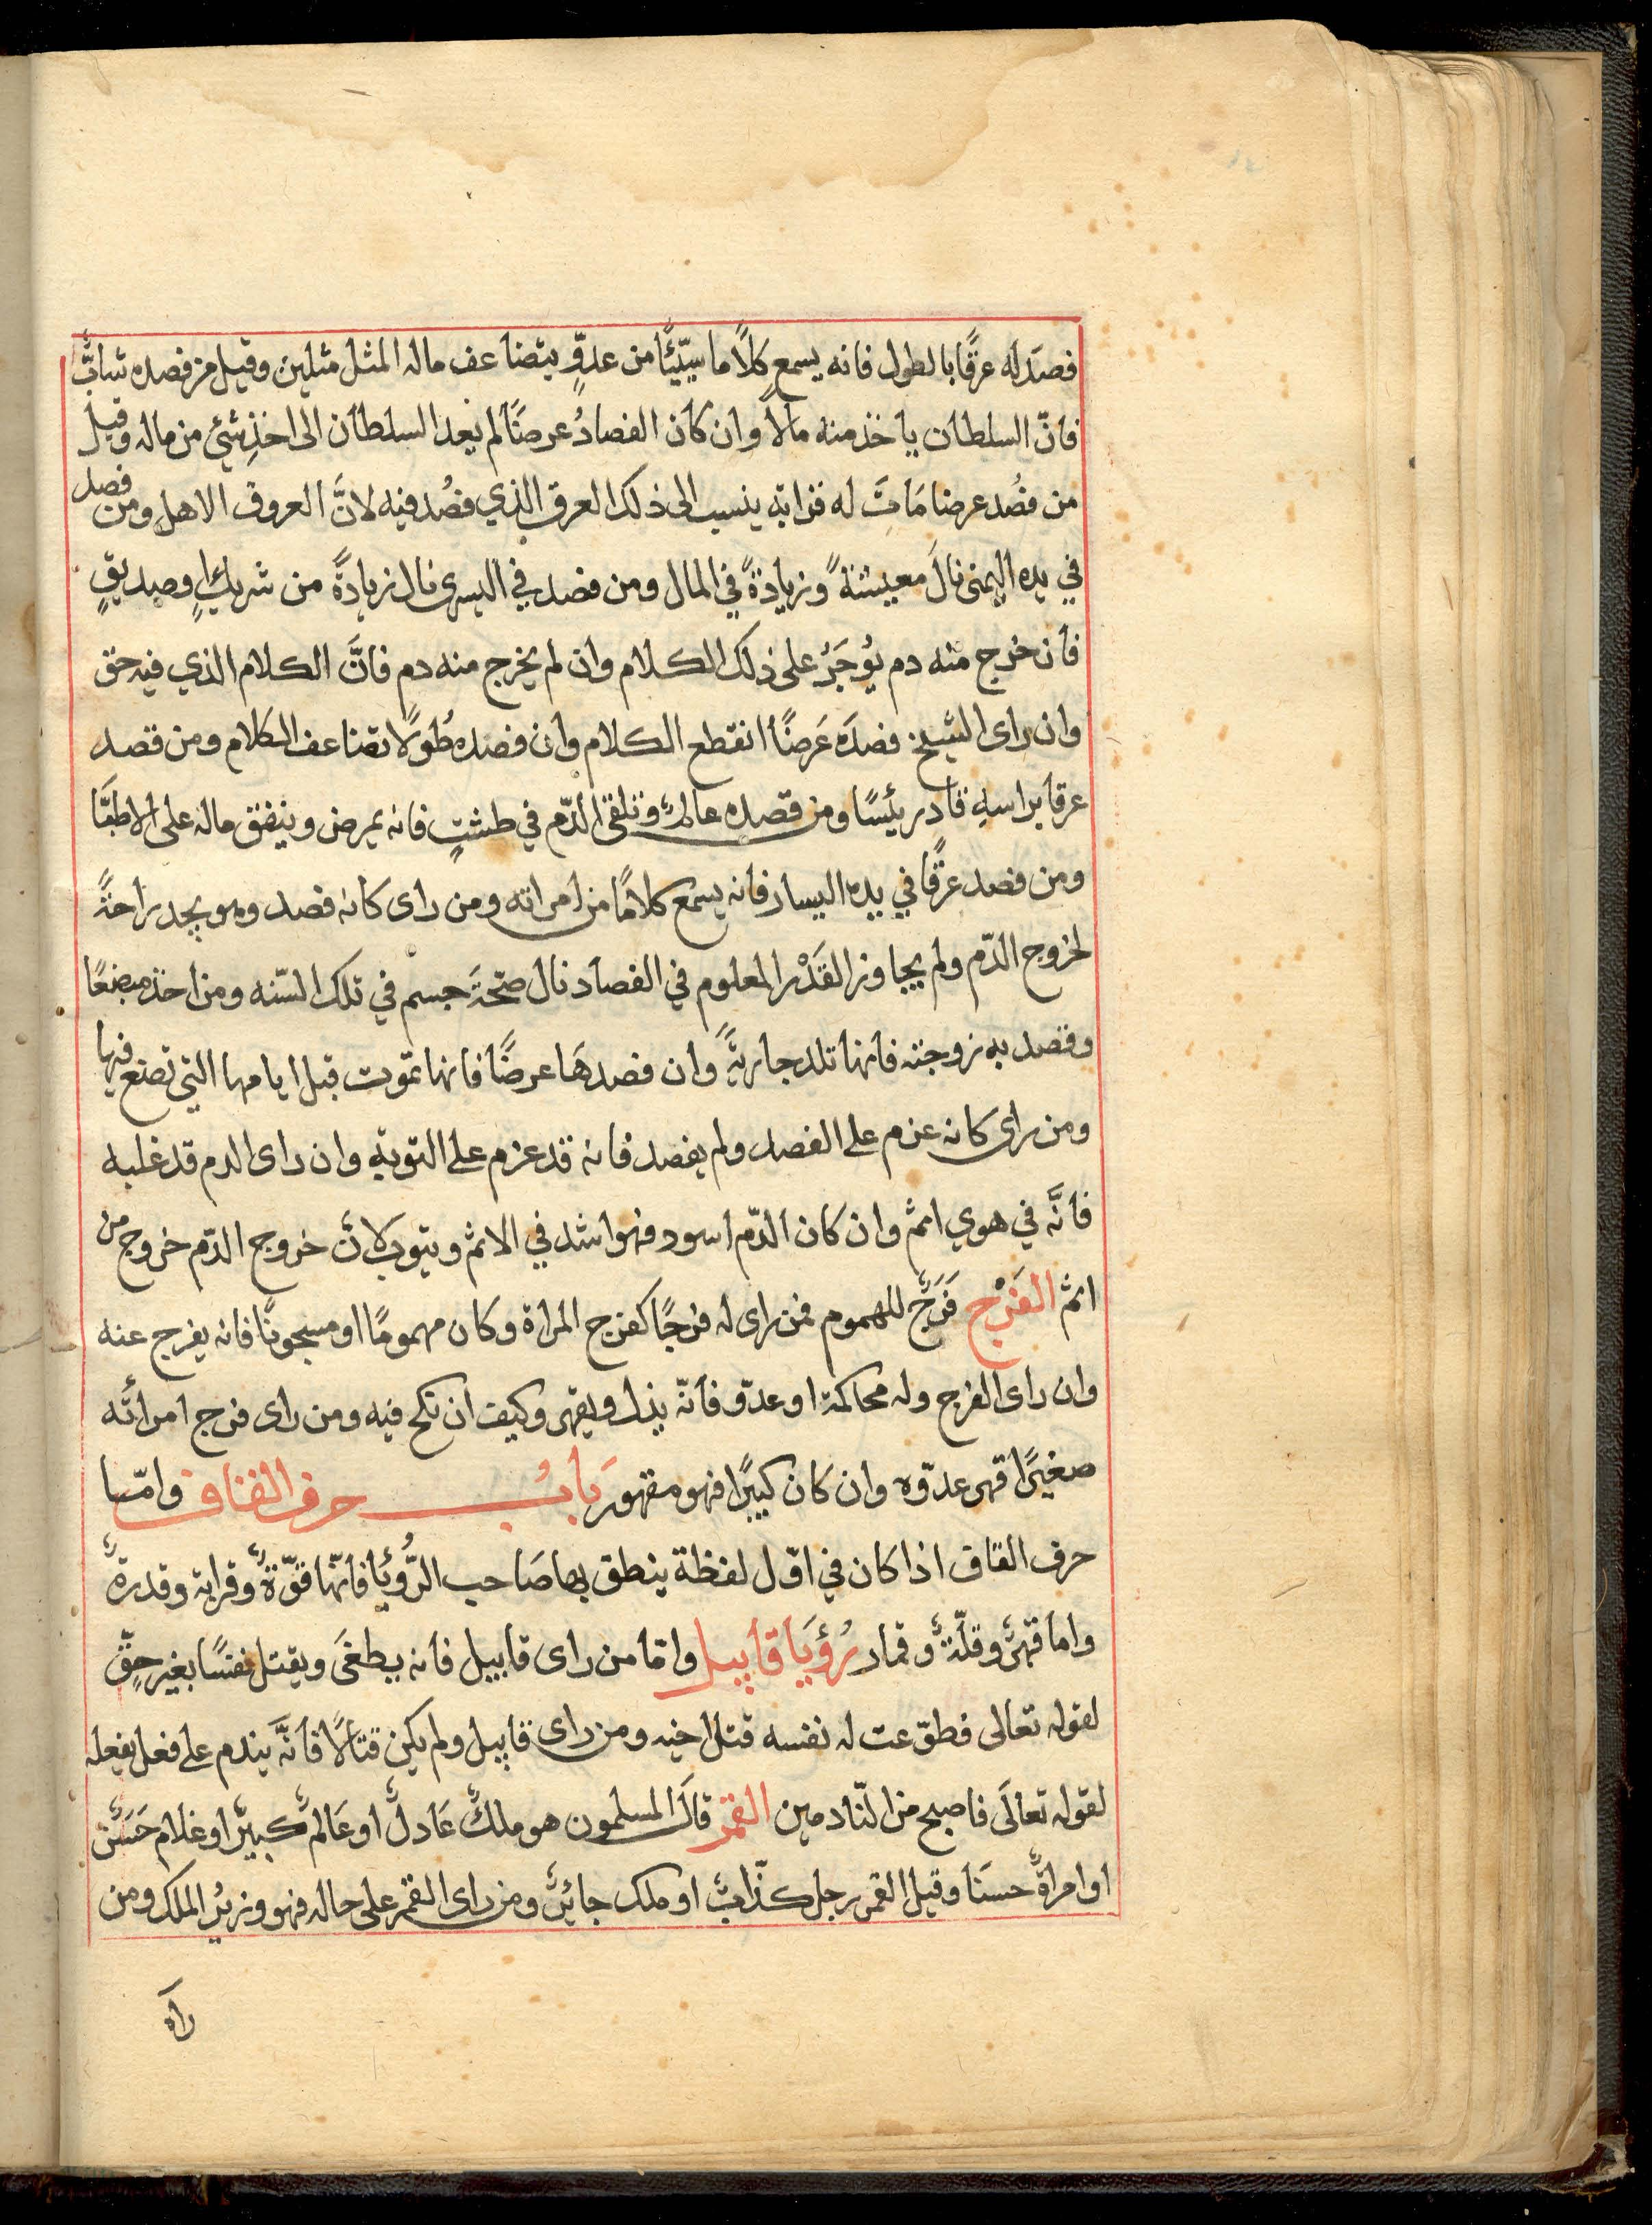 فصَدَ له عرقًا بالطول فانه يسمع كلامًا سيّئًا من عدوٍّ يتضاعف ماله المثل مثلين وقيل من فصده شابٌّ
فانّ السلطان ياخذ منه مالاً وان كان الفصادُ عرضًا لم يعد السلطان الى اخذِ شئي من ماله وقيل
من فُصد عرضا مَاتَ له قرابة ينسب الى ذلك العرق الذي فُصد فيه لانَّ العروق الاهل ومن فصد
في يده اليمنى نالَ معيشةً وزيادةً في المال ومن فصد في اليسرى نال زيادةً من شريكٍ وصديقٍ
فان خرج منه دم يُوجَرُ على ذلك الكلام وان لم يخرج منه دم فانَّ الكلام الذي فيه حق
وان راى الشيخ فصدَه عَرضًا انقطع الكلام وان فصده طُولاً تضاعف الكلام ومن فصد
عرقا براسهِ قاد رئيسًا ومن فصده عالمٌ وتلقى الدّم في طشتٍ فانه يمرض وينفق ماله على الاطبَّا
ومن فصد عرقًا في يده اليسار فانه يسمع كلامًا من امراته ومن راى كانه فصد وهو يجد راحةً
لخروج الدّم ولم يجاوز القَدْر المعلوم في الفصاد نال صحّةَ جسم في تلك السّنه ومن اخذ مبضعًا
وفصد به زوجته فانها تلد جاريةً وان فصدهَا عرضًا فانها تموت قبل ايامها التي تضع فيها
ومن راى كانه عزم على الفصد ولم يفصد فانه قد عزم على التوبة وان راى الدم قد غلبه
فانَّه في هوي اثم وان كان الدّم اسود فهو اشد في الاثم ويتوب لانّ خروج الدّم خروج من
اثم الفَرْج فَرَجٌ للهموم فمن راى له فرجًا كفرج المراة وكان مهمومًا او مسجونًا فانه يفرج عنه
وان راى الفرج وله محاكمة او عدوّ فانّه يذل ويقهر وكيف ان نكح فيه ومن راى فرج امرأته
صغيرًا قهر عدوّه وان كان كبيرًا فهو مقهور بَابُ حرف القاف وامّا
حرف القاف اذا كان في اوّل لفظة ينطق بها صَاحب الرُّؤيَا فانّها قوّةٌ وقرابة وقدرةٌ
واما قهرٌ وقلّةٌ وقمار رُؤيَا قابيل وامّا من راى قابيل فانه يطغَى ويقتل نفسًا بغير حقّ
لقوله تعالى فطوّعت له نفسه قتل اخيه ومن راى قابيل ولم يكن قتالًا فانَّه يندم على فعل يفعله
لقوله تعالَى فاصبح من النّادمين القمر قالَ المسلمون هو ملكٌ عَادلٌ او عَالمٌ كبيرٌ او غلام حَسَنٌ
او امراةٌ حسنَا وقيل القمر رجل كذّابٌ او ملك جائرٌ ومن راى القمر على حاله فهو وزيرُ الملك ومن
راه